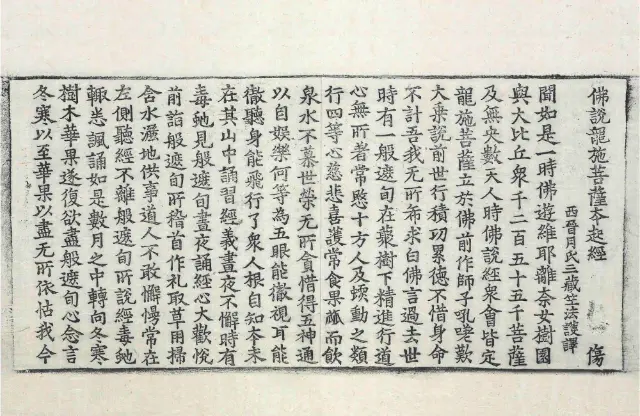 佛說龍施菩薩本起經 傷
西晉月氏三藏竺法護譯
聞如是一時佛遊維耶離奈女樹園
與大比丘衆千二百五十五千菩薩
及無央數天人時佛說經衆會皆定
龍施菩薩立於佛前作師子吼嗟歎
大乘說前世行積功累德不惜身命
不計吾我无所希求白佛言過去世
時有一般遮旬在藂樹下精進行道
心無所著常愍十方人及蠕動之類
行四等心慈悲喜護常食果蓏而飲
泉水不慕世榮无所貪惜得五神通
以自娛樂何等為五眼能徹視耳能
徹聽身能飛行了衆人根自知本末
在其山中誦習經義晝夜不懈時有
毒虵見般遮旬晝夜誦經心大歡悅
前詣般遮旬所稽首作礼取草用掃
含水灑地供事道人不敢懈慢常在
左側聽經不離般遮旬所說經毒虵
輒悉諷誦如是數月之中轉向冬寒
樹木華果遂復欲盡般遮旬心念言
冬寒以至華果以盡无所依怙我今